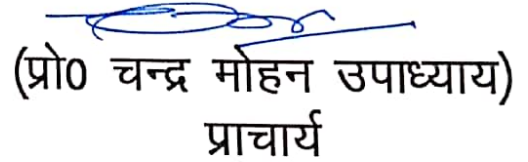 (प्रो0 चन्द्र मोहन उपाध्याय)
प्राचार्य